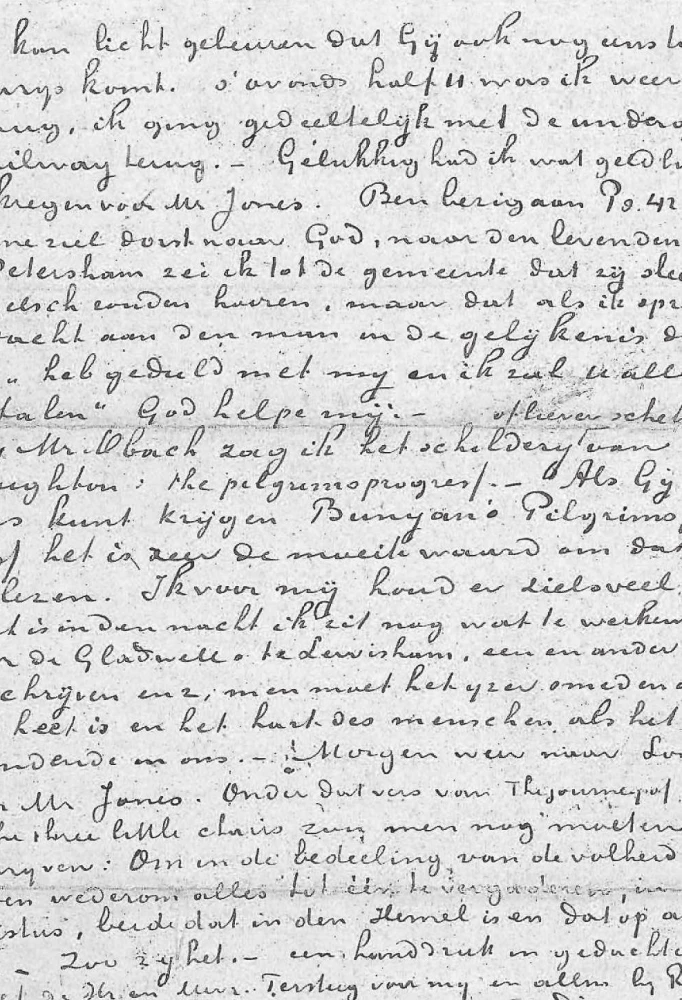 kan licht gebeuren dat Gij ook nog eens
komt. s'avonds half 11 was ik weer
ik ging gedeeltelijk met de
terug. – Gelukkig had ik wat geld
voor Mr Jones. Ben bezig aan Ps. 42
ziel dorst naar God, naar den levenden
Petersham zei ik tot de gemeente dat zij
zouden hooren, maar dat als ik
aan den man in de gelijkenis
„heb geduld met mij en ik zal u
God helpe mij. – of liever
Mr Obach zag ik het schilderij van
: the pilgrims progress. – Als Gij
kunt krijgen Bunyan's Pilgrims
het is zeer de moeite waard om dat
lezen. Ik voor mij houd er zielsveel
is in den nacht ik zit nog wat te werken
de Gladwells te Lewisham, een en ander
enz, men moet het yzer smeden
heet is en het hart des menschen als het
in ons. – Morgen weer naar
Mr Jones. Onder dat vers van The journey of
three little chairs zou men nog moeten
: Om in de bedeeling van de volheid
wederom alles tot één te vergaderen, in
, beide dat in den Hemel is en dat op
– Zoo zij het. – een handdruk in gedachte
Mr en Mevr. Tersteeg voor mij en allen bij